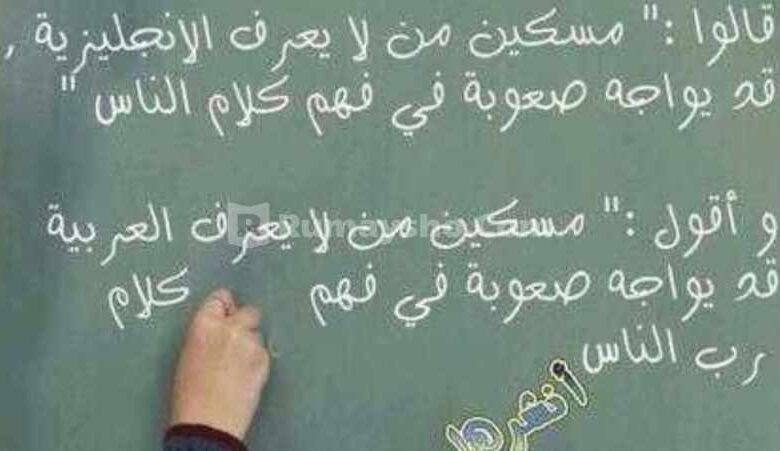 قالوا :" مسكين من لا يعرف الإنجليزية ,
قد يواجه صعوبة في فهم كلام الناس "
و أقول :" مسكين من لا يعرف العربية
قد يواجه صعوبة في فهم كلام
رب الناس
Rumaysho.Com